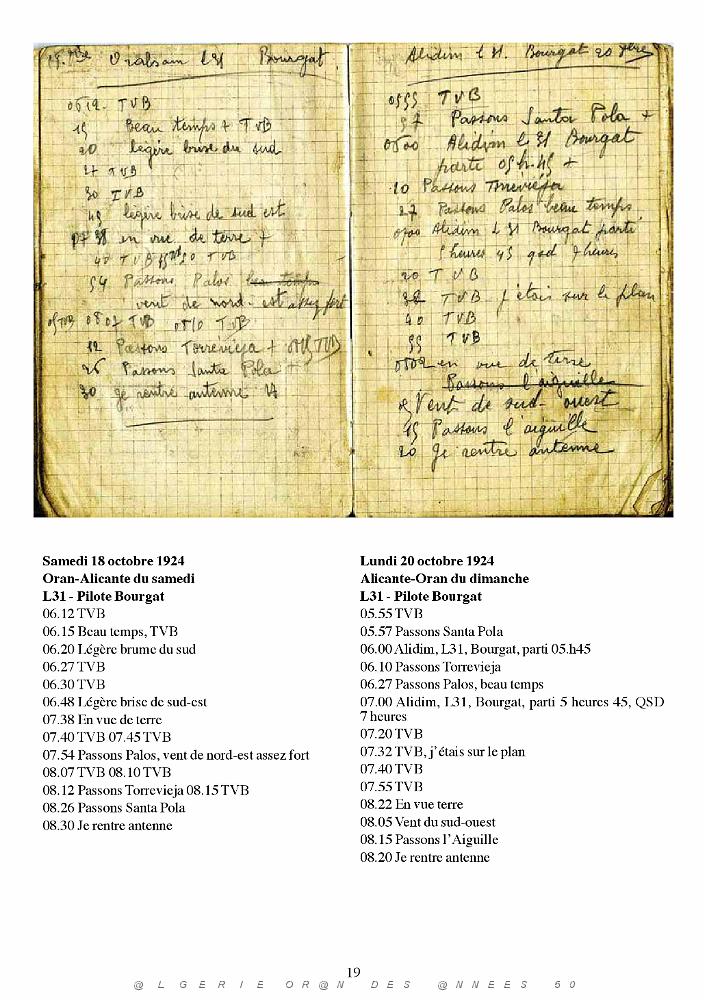 Oralsain L31 Bourgat
0612 TVB
15 Beau temps + TVB
20 légère brise du sud
27 TVB
30 TVB
48 légère brise de sud est
0738 en vue de terre +
40 TVB 50 TVB
54 Passons Palos beau temps
vent de nord-est assez fort
0807 TVB 0810 TVB
12 Passons Torrevieja + 0815 TVB
26 Passons Santa Pola +
30 je rentre antenne
Alidim L 31. Bourgat 20
0555 TVB
57 Passons Santa Pola +
0600 Alidim L 31 Bourgat
parte 05h.45 +
10 Passons
27 Passons Palos beau temps
0700 Alidim L 31 Bourgat parti
5 heures 45 qsd 7 heures
20 TVB
32 TVB j'étais sur le plan
40 TVB
55 TVB
0802 en vue de terse
Passons l'aiguille
05 Vent de sud-ouest
15 Passons l'aiguille
20 je rentre antenne
Samedi 18 octobre 1924
Oran-Alicante du samedi
L31 - Pilote Bourgat
06.12 TVB
06.15 Beau temps, TVB
06.20 Légère brume du sud
06.27 TVB
06.30 TVB
06.48 Légère brise de sud-est
07.38 En vue de terre
07.40 TVB 07.45 TVB
07.54 Passons Palos, vent de nord-est assez fort
08.07 TVB 08.10 TVB
08.12 Passons Torrevieja 08.15 TVB
08.26 Passons Santa Pola
08.30 Je rentre antenne
Lundi 20 octobre 1924
Alicante-Oran du dimanche
L31 - Pilote Bourgat
05.55 TVB
05.57 Passons Santa Pola
06.00 Alidim, L31, Bourgat, parti 05.h45
06.10 Passons Torrevieja
06.27 Passons Palos, beau temps
07.00 Alidim, L31, Bourgat, parti 5 heures 45, QSD
7 heures
07.20 TVB
07.32 TVB, j'étais sur le plan
07.40 TVB
07.55 TVB
08.22 En vue terre
08.05 Vent du sud-ouest
08.15 Passons l'Aiguille
08.20 Je rentre antenne
19
@ L G E R I E O R @ N D E S @ N N E E S 5 0